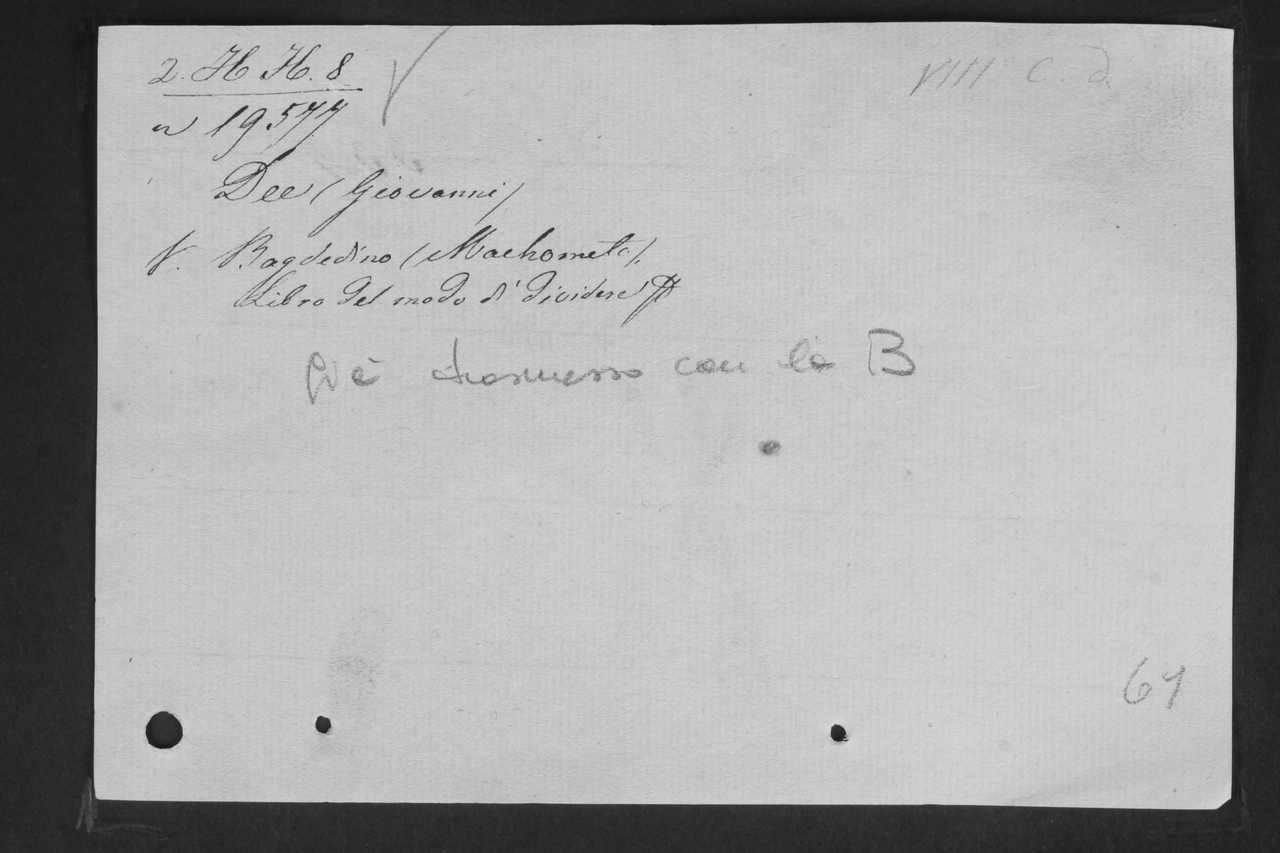 2. H H. 8
VIII C. d
n 19577
Dee (Giovanni)
V. Bagdedino (Machometo).
Libro del modo di dividere
Già trasmesso con la B
67